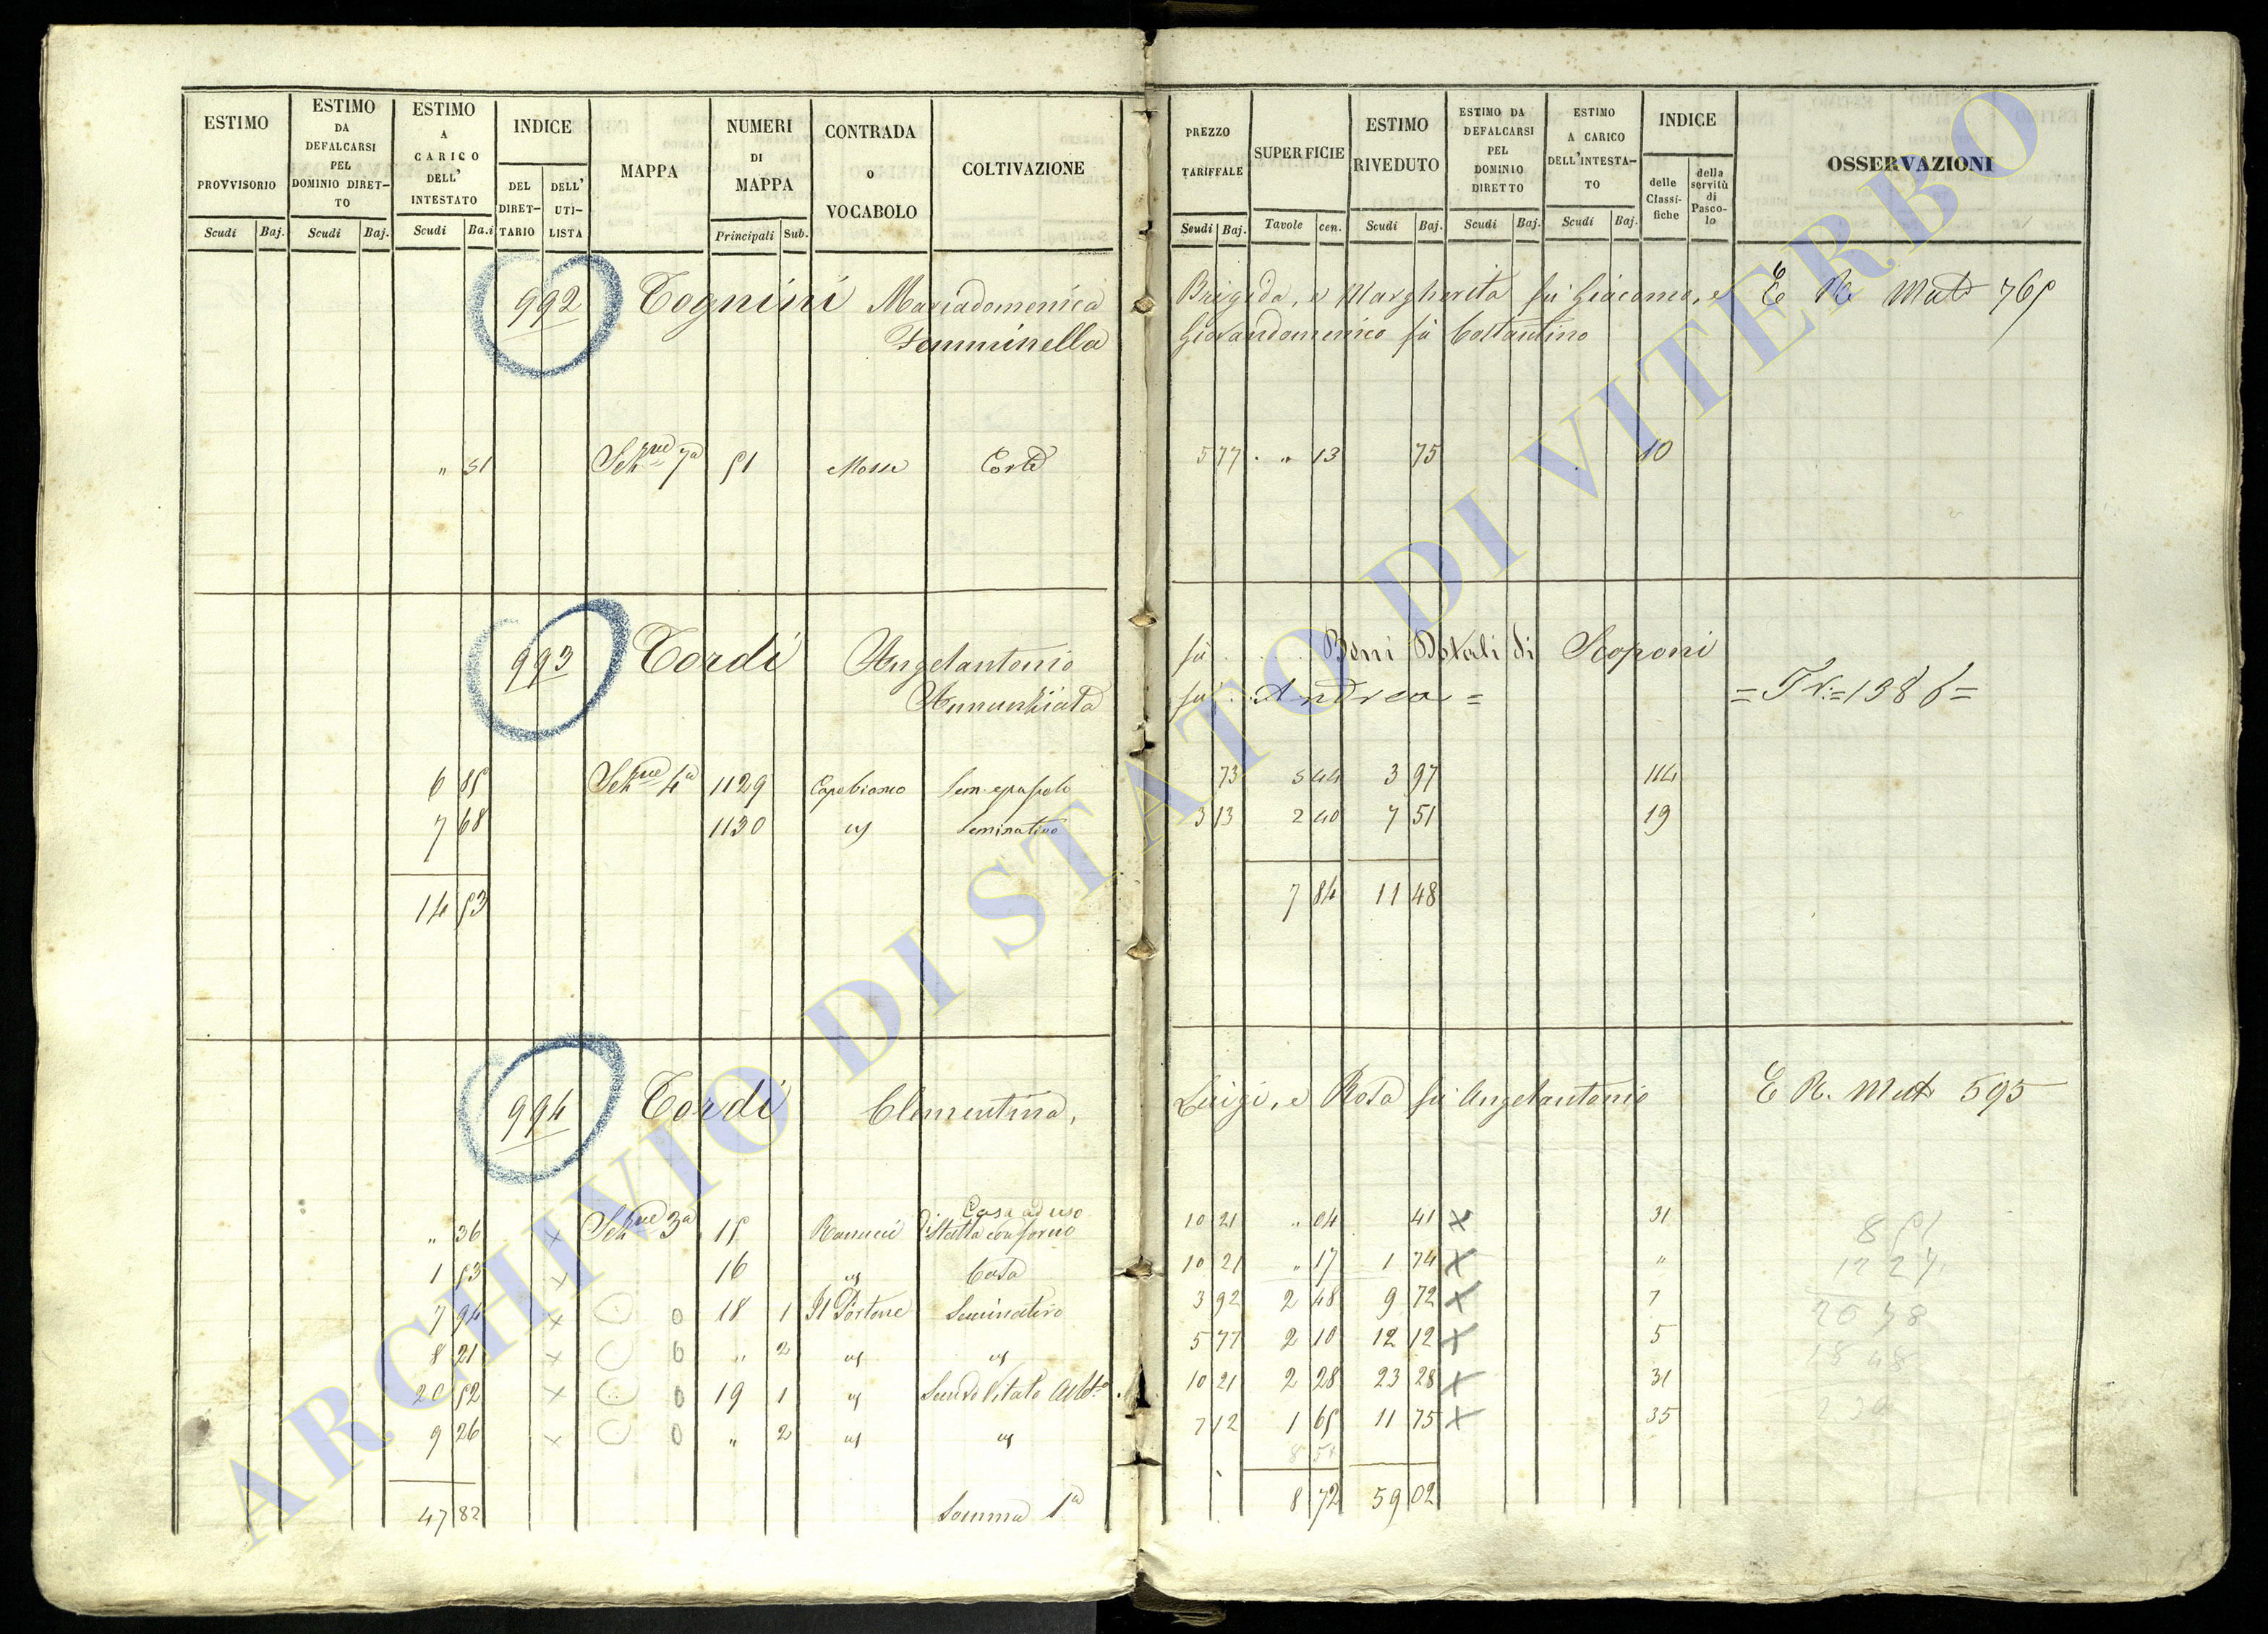 ESTIMO PROVVISORIO Scudi Baj.
ESTIMO DA DEFALCARSI PEL DOMINIO DIRET-TO Scudi Baj.
ESTIMO A CARICO DELL' INTESTATO Scudi Ba.i
INDICE DEL DIRET-TARIO DELL' UTI-LISTA
MAPPA
NUMERI DI MAPPA Principali Sub.
CONTRADA O VOCABOLO
COLTIVAZIONE
PREZZO TARIFFALE Scudi Baj.
SUPERFICIE Tavole cen.
ESTIMO RIVEDUTO Scudi Baj.
ESTIMO DA DEFALCARSI PEL DOMINIO DIRETTO Scudi Baj.
ESTIMO A CARICO DELL'INTESTA-TO Scudi Baj.
INDICE delle Classi-fiche della servitù di Pasco-lo
OSSERVAZIONI
992 Tognini Mariadomenica Brigida, e Margherita fu Giacomo, e E R Mut 765
Femminella Giovandomenico fù Costantino
" 51 Sez.ne 7a 51 Mosse Corte 5 77 " 13 75 10
993 Tordi Angelantonio fù Beni Dotali di Scoponi
Annunziata fù Andrea = = Tr:=1386=
6 85 Sez.ne 4a 1129 Capobianco Sem. e pascolo 73 5 44 3 97 114
7 68 1130 id Seminativo 3 13 2 40 7 51 19
14 53 7 84 11 48
994 Tordi Clementina, Luigi, e Rosa fù Angelantonio E R. Mut 595
" 36 x Sez.ne 3a 15 Ranucci Casa ad uso di Stalla con forno 10 21 " 04 41 x 31
1 53 x 16 id Casa 10 21 " 17 1 74 x "
7 94 x 0 18 1 Il Portone Seminativo 3 92 2 48 9 72 x 7
8 21 x 0 " 2 id id 5 77 2 10 12 12 x 5
20 52 x 0 19 1 id Semvo Vitato Albto 10 21 2 28 23 28 x 31
9 26 x 0 " 2 id id 7 12 1 65 11 75 x 35
47 82 Somma 1a 8 72 59 02
ARCHIVIO DI STATO DI VITERBO